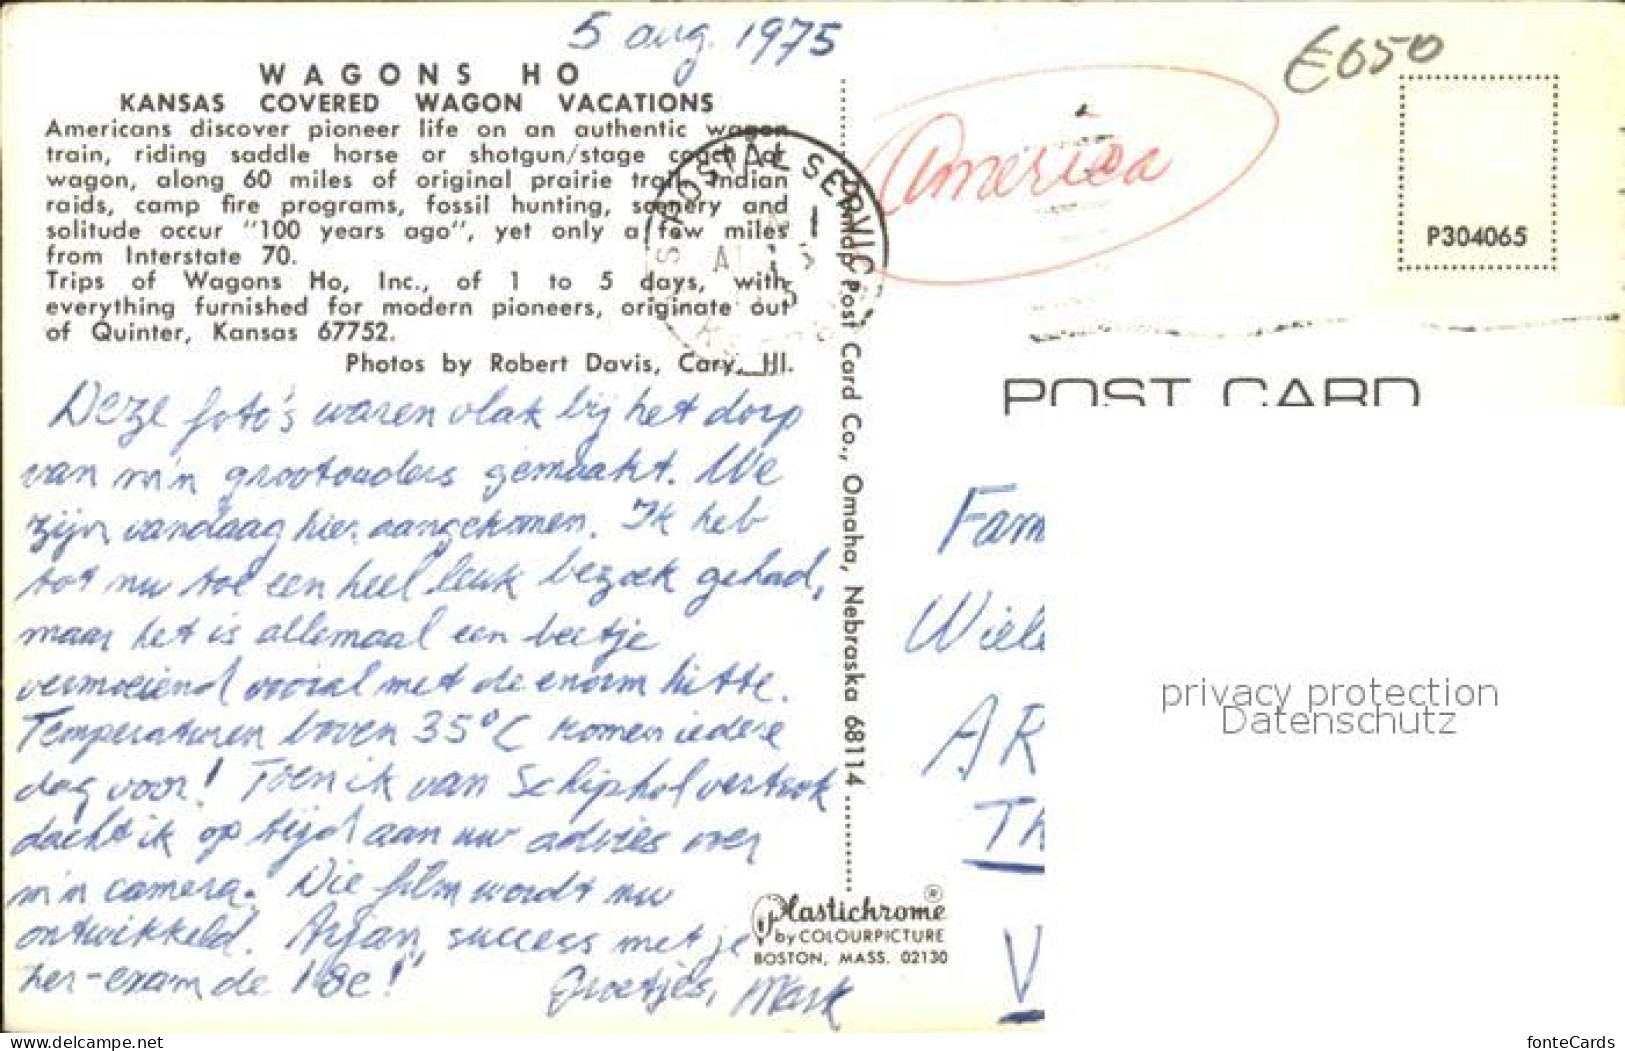 5 aug. 1975
WAGONS HO
KANSAS COVERED WAGON VACATIONS
Americans discover pioneer life on an authentic wagon
train, riding saddle horse or shotgun/stage coach or
wagon, along 60 miles of original prairie trail. Indian
raids, camp fire programs, fossil hunting, scenery and
solitude occur "100 years ago", yet only a few miles
from Interstate 70.
Trips of Wagons Ho, Inc., of 1 to 5 days, with
everything furnished for modern pioneers, originate out
of Quinter, Kansas 67752.
Photos by Robert Davis, Cary, Ill.
Deze foto's waren vlak bij het dorp
van m'n grootouders gemaakt. We
zijn vandaag hier aangekomen. Ik heb
tot nu toe een heel leuk bezoek gehad,
maar het is allemaal een beetje
vermoeiend vooral met de enorm hitte.
Temperaturen boven 35°C komen iedere
dag voor! Toen ik van Schiphol vertrok
dacht ik op tijd aan uw advies over
m'n camera. Die film wordt nu
ontwikkeld. Arjan, success met je
her-exam de 18e!
Groetjes, Mark
POSTAL SERVICE
Post Card Co., Omaha, Nebraska 68114
Plastichrome®
by COLOURPICTURE
BOSTON, MASS. 02130
€650
America
P304065
POST CARD
Fam
Wiel
AR
Th
V
privacy protection
Datenschutz
www.delcampe.net
fonteCards